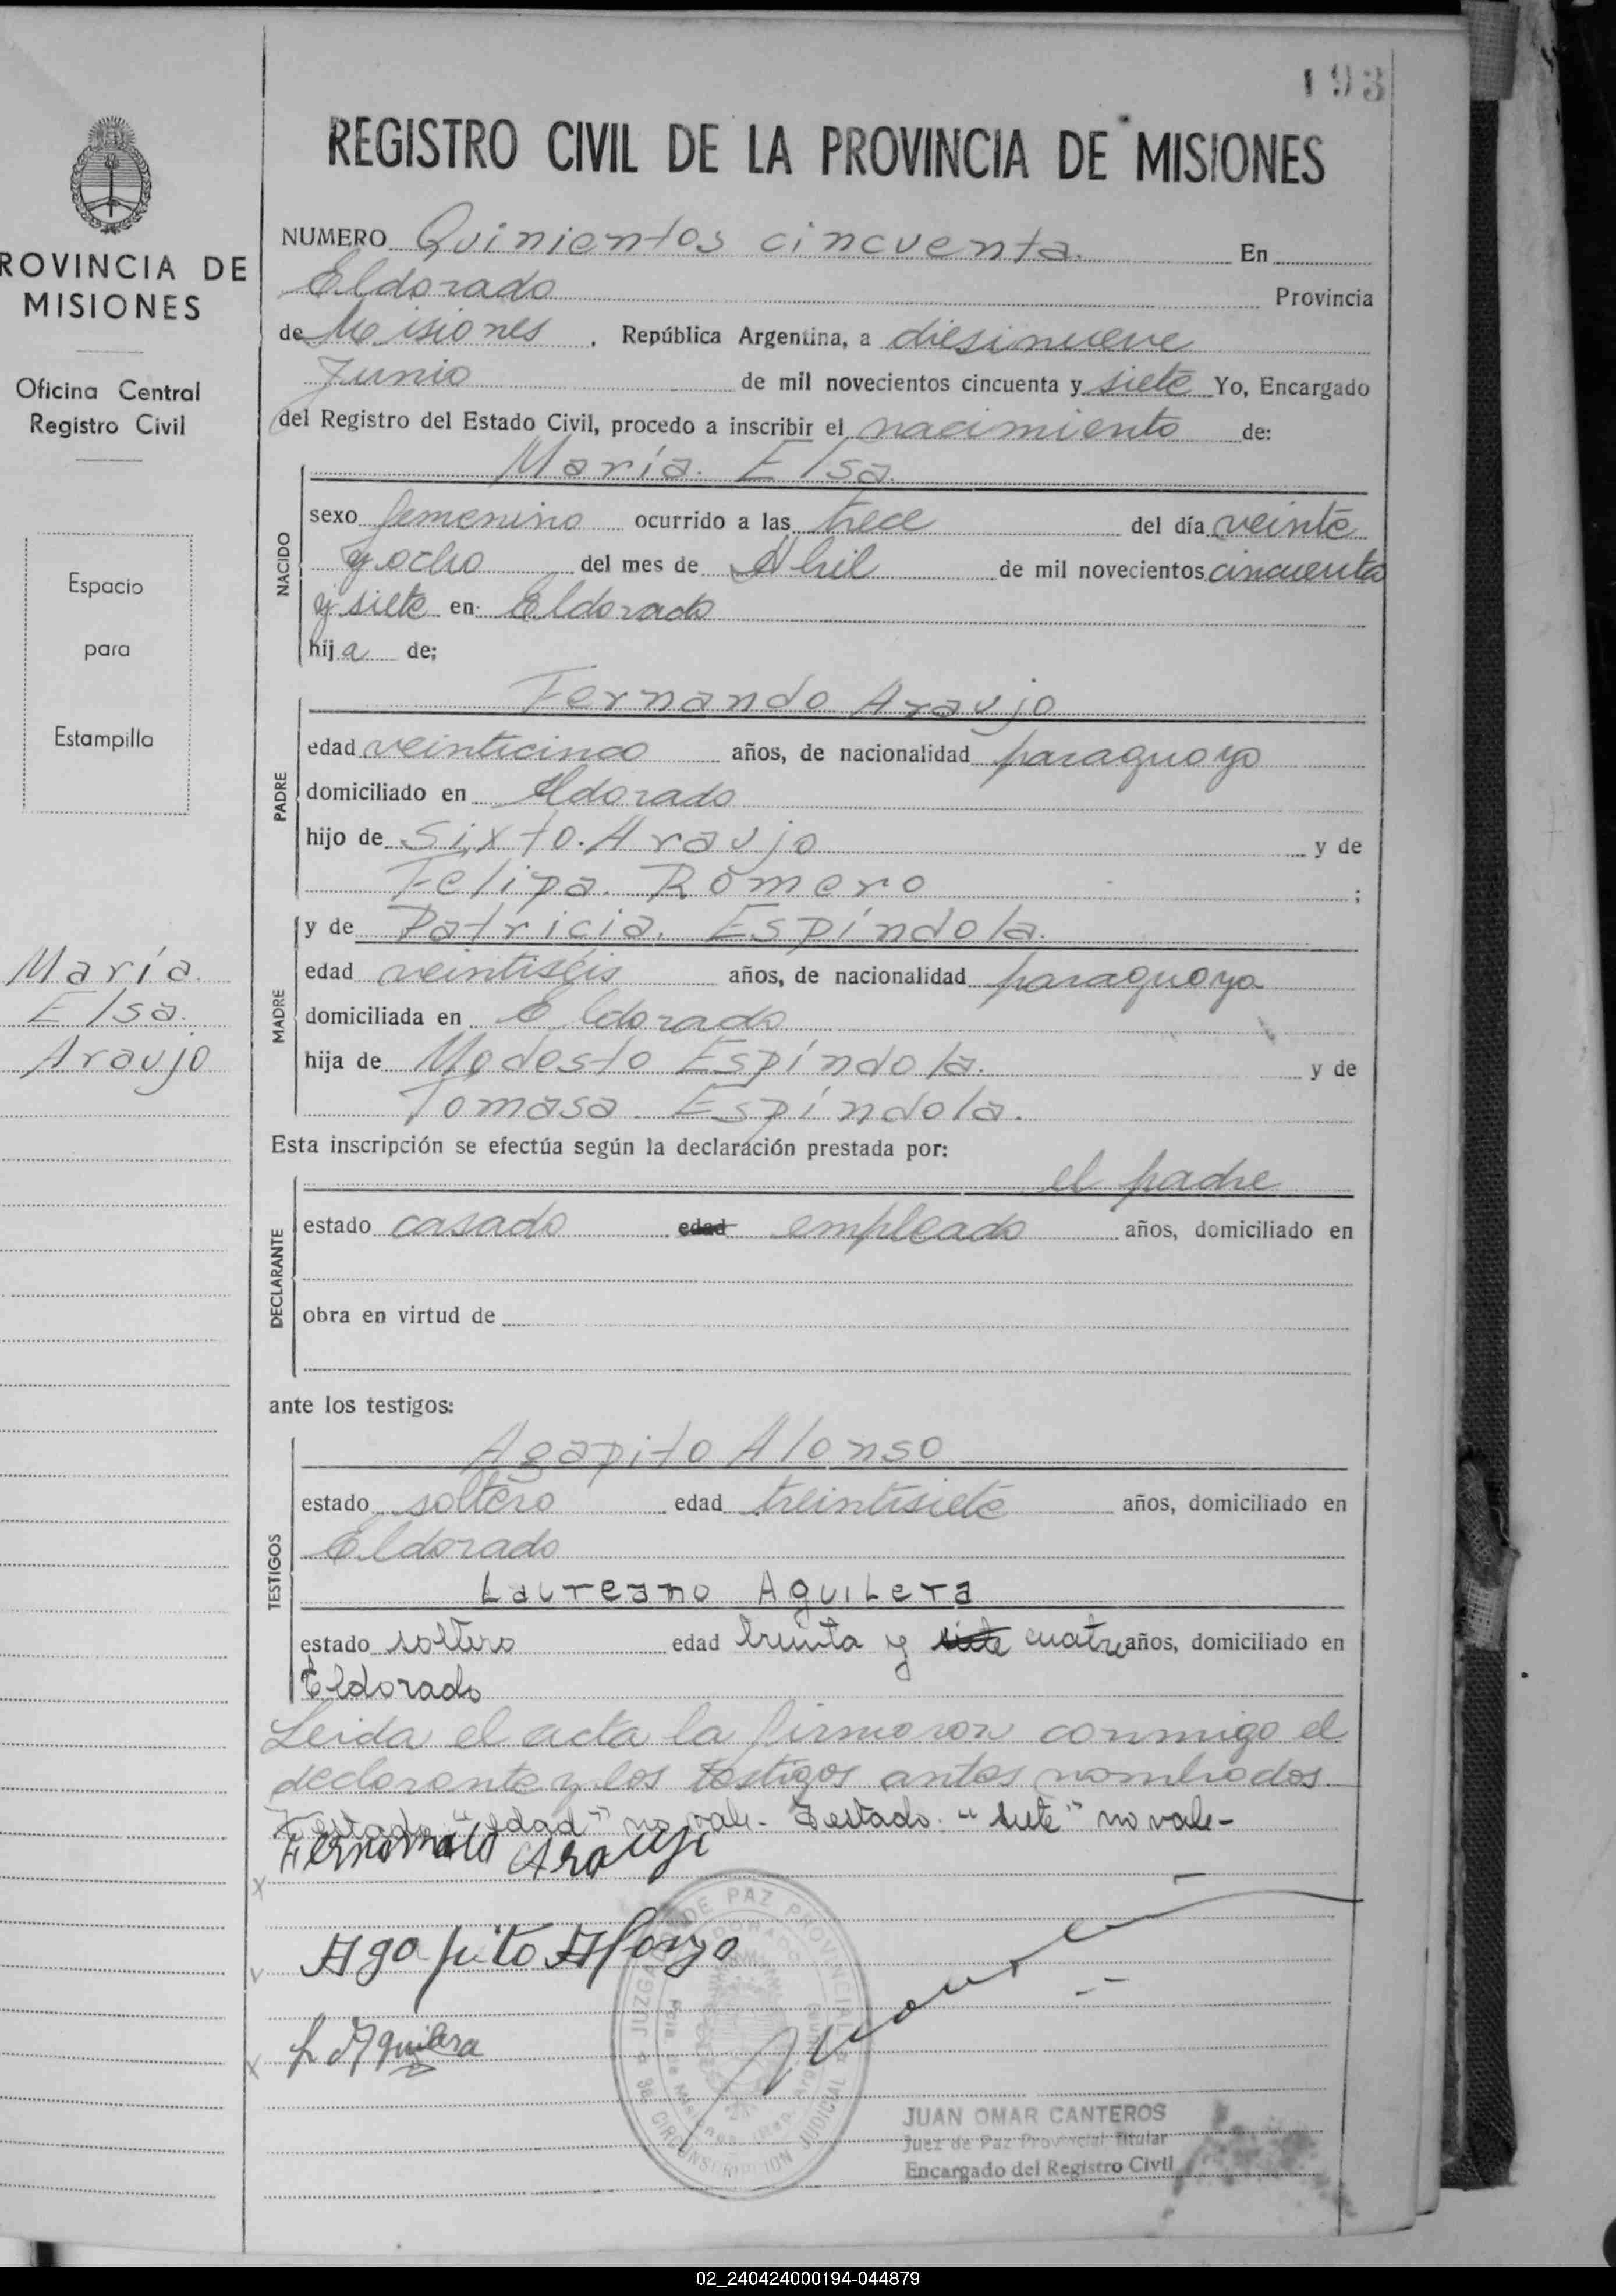 193
REGISTRO CIVIL DE LA PROVINCIA DE MISIONES
ROVINCIA DE
MISIONES
Oficina Central
Registro Civil
Espacio
para
Estampilla
María
Elsa
Araujo
NUMERO Quinientos cincuenta. En
Eldorado Provincia
de Misiones, República Argentina, a diesinueve
Junio de mil novecientos cincuenta y siete Yo, Encargado
del Registro del Estado Civil, procedo a inscribir el nacimiento de:
María. Elsa.
NACIDO
sexo femenino ocurrido a las trece del día veinte
y ocho del mes de Abril de mil novecientos cincuenta
y siete en Eldorado
hija de;
Fernando Araujo
PADRE
edad veinticinco años, de nacionalidad paraguayo
domiciliado en Eldorado
hijo de Sixto. Araujo y de
Felipa. Romero ;
y de Patricia. Espíndola.
MADRE
edad veintiséis años, de nacionalidad paraguaya
domiciliada en Eldorado
hija de Modesto Espíndola. y de
Tomasa. Espíndola.
Esta inscripción se efectúa según la declaración prestada por:
el padre
DECLARANTE
estado casado edad empleado años, domiciliado en
obra en virtud de
ante los testigos:
Agapito Alonso
TESTIGOS
estado soltero edad treintisiete años, domiciliado en
Eldorado
Laureano Aguilera
estado soltero edad treinta y siete cuatro años, domiciliado en
Eldorado
Leida el acta la firmaron conmigo el
declarante y los testigos antes nombrados
Testado "edad" no vale- Testado. "siete" no vale-
Fernando Araujo
Agapito Alonzo
L Aguilera
JUZGADO DE PAZ PROVINCIAL
CIRCUNSCRIPCION JUDICIAL
JUAN OMAR CANTEROS
Juez de Paz Provincial Titular
Encargado del Registro Civil
02_240424000194-044879